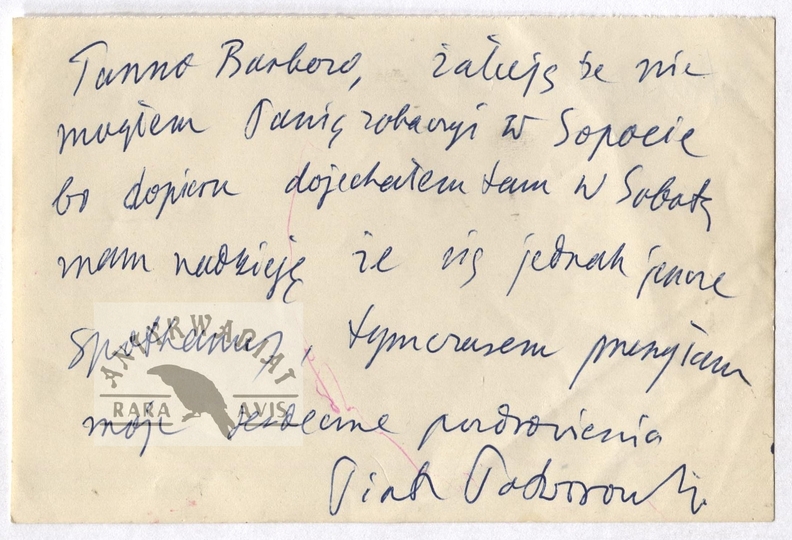 Panno Barbaro, żałuję że nie
mogłem Panią zobaczyć w Sopocie
bo dopiero dojechałem tam w Sobotę
mam nadzieję że się jednak jeszcze
spotkamy, tymczasem przesyłam
ANTYKWARIAT
RARA AVIS
moje serdeczne pozdrowienia
Piotr Potworowski